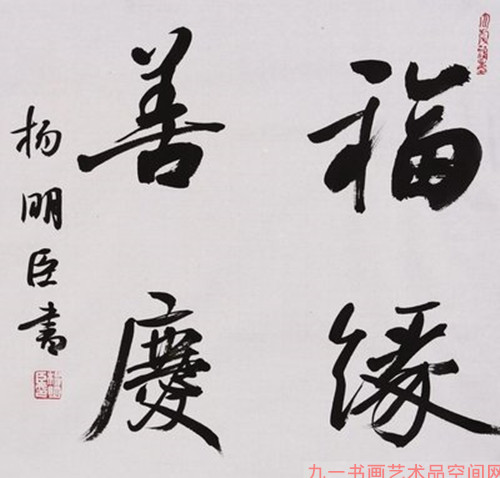 福缘
善慶
杨明臣书
九一书画艺术品空间网